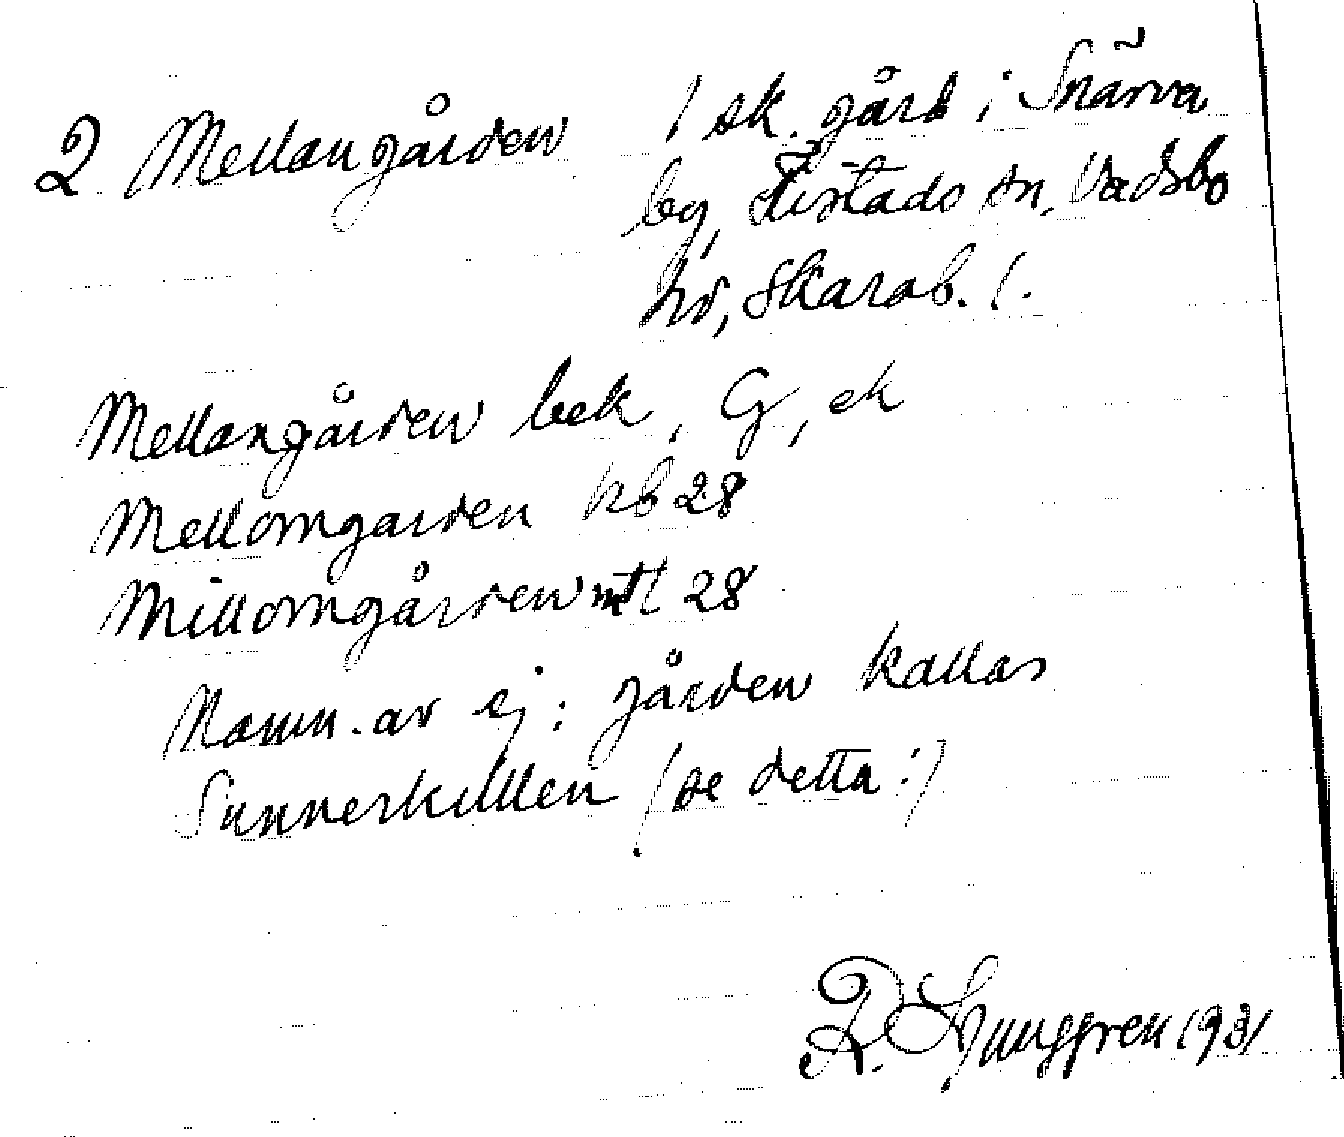 2 Mellangården 1 sk. gård i Snärva
by, Tistads sn, Vadsbo
hd, Skarab. l.
Mellangården bek, G, ek
Mellomgarden kb 28
Millomgården mtl 28
Namn. av ej: gården kallas
Sunnerkullen (se detta!)
R. Ljunggren 1931